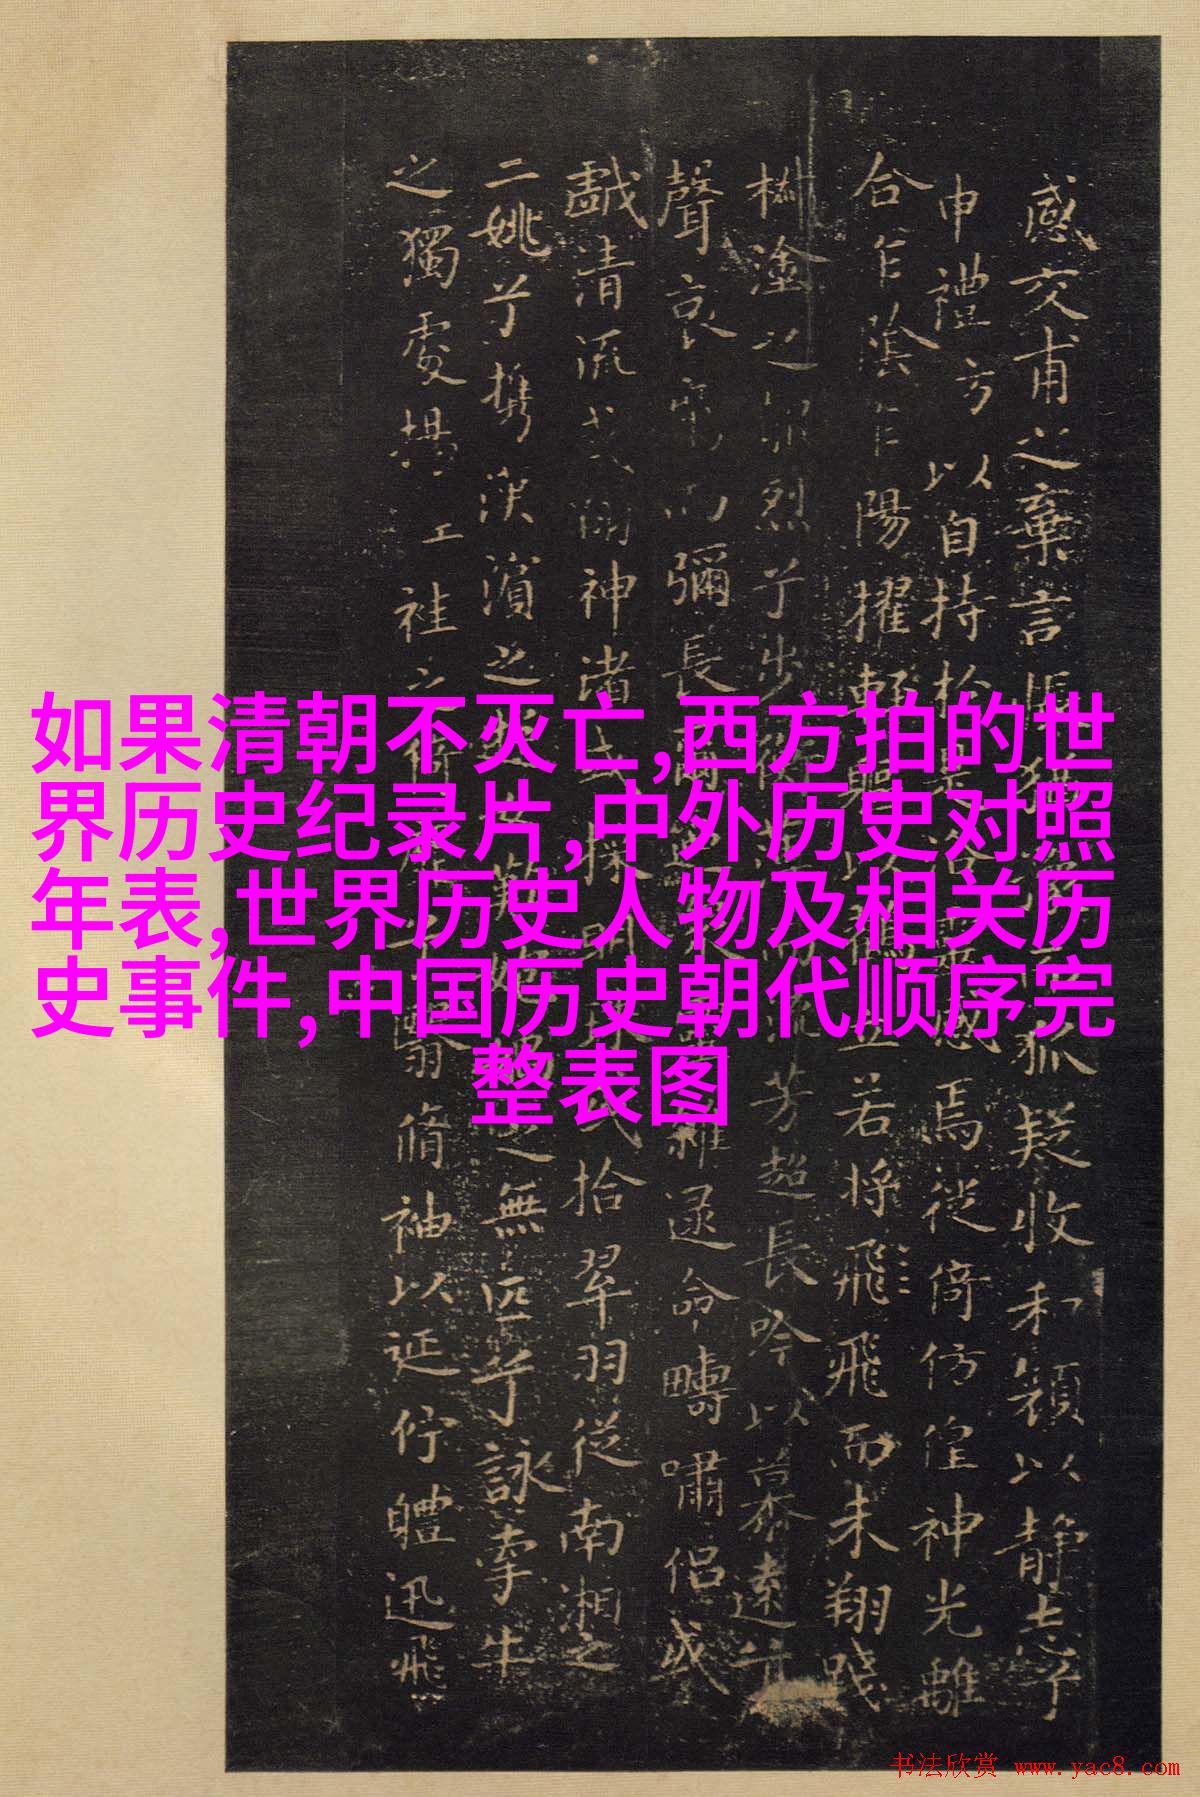 感交甫之棄言悵猶狐疑收和顏以靜志兮
申禮方以自持於是洛感焉徙倚仿偟神光離
合乍陰乍陽擢輕軀以立若將飛飛而未翔踐
椒塗之郁烈兮步芳超長吟以慕遠兮
聲哀而彌長爾雜遝命疇嘯侶或
戲清流或翔神渚或採明珠或拾翠羽從南湘之
二姚兮攜漢濱之無匹兮詠牽牛
之獨處揚袿之翳脩袖以延佇軆迅飛
如果清朝不灭亡,西方拍的世
界历史纪录片,中外历史对照
年表,世界历史人物及相关历
史事件,中国历史朝代顺序完
整表图
书法欣赏 www.yac8.com